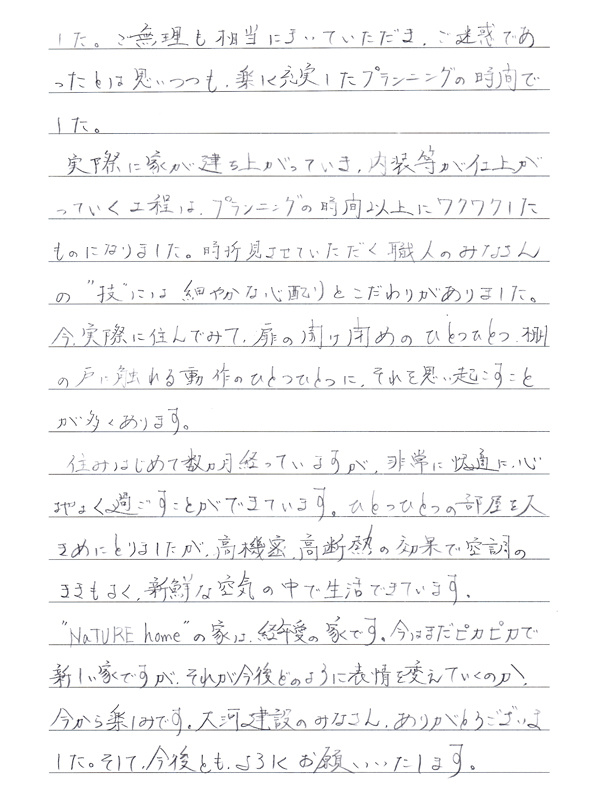 した。ご無理も相当にきいていただき、ご迷惑であ
ったとは思いつつも、楽しく充実したプランニングの時間で
した。
実際に家が建ち上がっていき、内装等が仕上が
っていく工程は、プランニングの時間以上にワクワクした
ものになりました。時折見させていただく職人のみなさん
の"技"には細やかな心配りとこだわりがありました。
今、実際に住んでみて、扉の開け閉めのひとつひとつ、棚
の戸に触れる動作のひとつひとつに、それを思い起こすこと
が多くあります。
住みはじめて数ヵ月経っていますが、非常に快適に、心
地よく過ごすことができています。ひとつひとつの部屋を大
きめにとりましたが、高機密、高断熱の効果で空調の
ききもよく、新鮮な空気の中で生活できています。
"NaTURE home"の家は、経年愛の家です。今はまだピカピカで
新しい家ですが、それが今後どのように表情を変えていくのか、
今から楽しみです。大河建設のみなさん、ありがとうございま
した。そして、今後とも、よろしくお願いいたします。